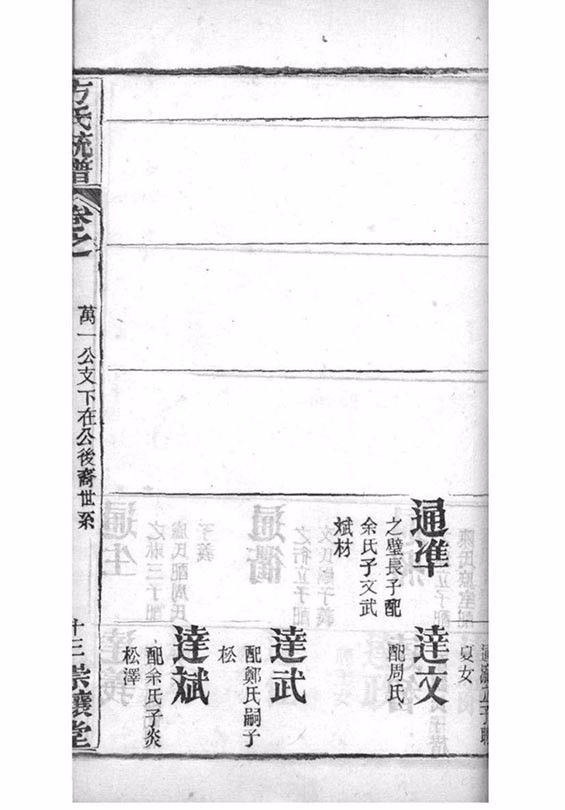 通準
之璧長子配
余氏子文武
斌材
夏女
達文
配周氏
達武
配鄭氏嗣子
松
達斌
配余氏子炎
松澤
方氏統譜
卷之
萬一公支下在公後裔世系
十三 崇讓堂